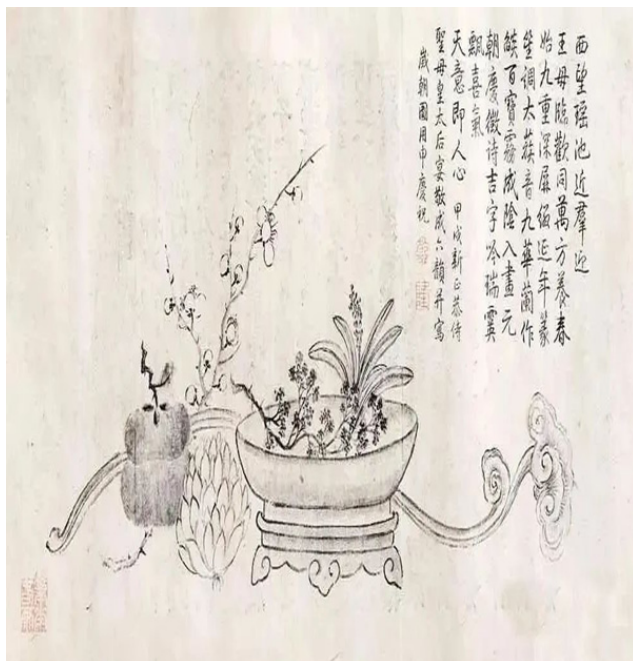 西望瑶池近羣迎
王母臨歡同萬方養春
始九重深屏延年篆
笙調太蔟音九華蘭作
百寶靄成陰入畫元
朝慶徵诗吉字吟瑞霙
飄喜氣
天意即人心 甲戌新正恭侍
聖母皇太后宴敬成六韻并寫
歲朝圖用申慶祝